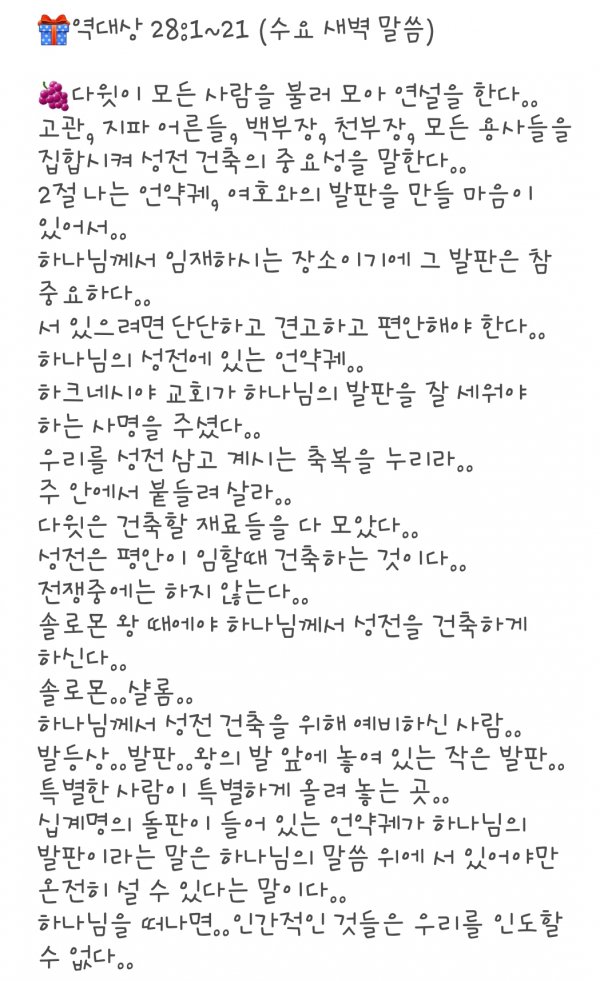 🎁역대상 28:1~21 (수요 새벽 말씀)
🍇다윗이 모든 사람을 불러 모아 연설을 한다..
고관, 지파 어른들, 백부장, 천부장, 모든 용사들을
집합시켜 성전 건축의 중요성을 말한다..
2절 나는 언약궤, 여호와의 발판을 만들 마음이
있어서..
하나님께서 임재하시는 장소이기에 그 발판은 참
중요하다..
서 있으려면 단단하고 견고하고 편안해야 한다..
하나님의 성전에 있는 언약궤..
하크네시야 교회가 하나님의 발판을 잘 세워야
하는 사명을 주셨다..
우리를 성전 삼고 계시는 축복을 누리라..
주 안에서 붙들려 살라..
다윗은 건축할 재료들을 다 모았다..
성전은 평안이 임할때 건축하는 것이다..
전쟁중에는 하지 않는다..
솔로몬 왕 때에야 하나님께서 성전을 건축하게
하신다..
솔로몬..샬롬..
하나님께서 성전 건축을 위해 예비하신 사람..
발등상..발판..왕의 발 앞에 놓여 있는 작은 발판..
특별한 사람이 특별하게 올려 놓는 곳..
십계명의 돌판이 들어 있는 언약궤가 하나님의
발판이라는 말은 하나님의 말씀 위에 서 있어야만
온전히 설 수 있다는 말이다..
하나님을 떠나면..인간적인 것들은 우리를 인도할
수 없다..